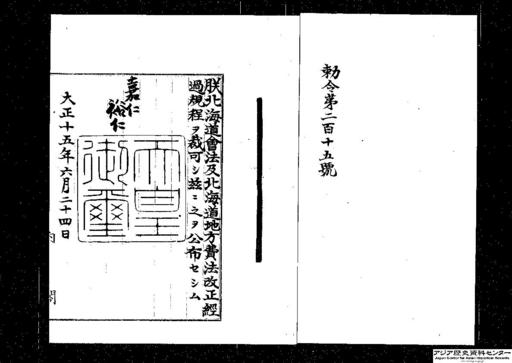 勅令第二百十五號
朕北海道會法及北海道地方費法改正經
過規程ヲ裁可シ茲ニ之ヲ公布セシム
嘉仁
裕仁
天皇御璽
大正十五年六月二十四日
内閣
アジア歴史資料センター
Japan Center for Asian Historical Records